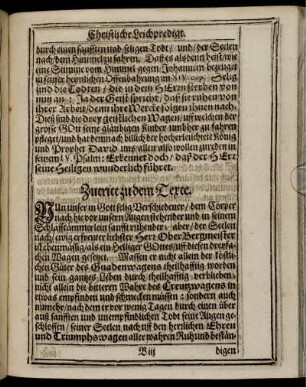 Christliche Leichpredigt.
durch einen sanfften und seligen Todt/ und/ der Seelen
nach/ dem Himmel zu fahren. Daß es also denn heist/ wie
eine Stimme vom Himmel gegen Johannem bezeuget
in seiner heymlichen Offenbahrung im XIV. cap. Selig
sind die Todten/ die in dem HErrn sterben von
nun an: Ja der Geist spricht/ daß sie ruhen von
ihrer Arbeit/ denn ihre Wercke folgen ihnen nach.
Dieß sind die drey geistlichen Wagen/ uff welchen der
grosse GOtt seine gläubigen Kinder umbher zu fahren
pfleget/ und hat dennach billich der hocherleichtete König
und Prophet David uns allen also wollen zureden in
seinem IV. Psalm: Erkennet doch/ daß der HErr
seine Heiligen wunderlich führet.
Zutritt zu dem Texte.
NUn unser in Gott selig Verschiedener/ dem Cörper
nach/ hie vor unsern Augen stehender und in seinem
Schlaffkämmerlein sanfft ruhender/ aber/ der Seelen
nach/ ewig erfreueter liebster Herr Ober Bergmeister
ist ebenmässig/ als ein Heiliger Gottes/ uff diesen dreyfa-
chen Wagen gesetzet. Massen er nicht allein der köstli-
chen Güter des Gnadenwagens theilhafftig worden
und sein gantzes Leben durch theilhafftig verblieben:
nicht allein die bittern Wahre des Creutzwagens in
etwas empfinden und schmecken müssen: sondern auch
nunmehr/ nach dem er vor wenig Tagen durch einen über
auß sanfften und unempfindlichen Todt seine Augen ge-
schlossen/ seiner Seelen nach uff den herrlichen Ehren
und Triumphswagen aller wahren Ruh und bestän-
B iij
digen